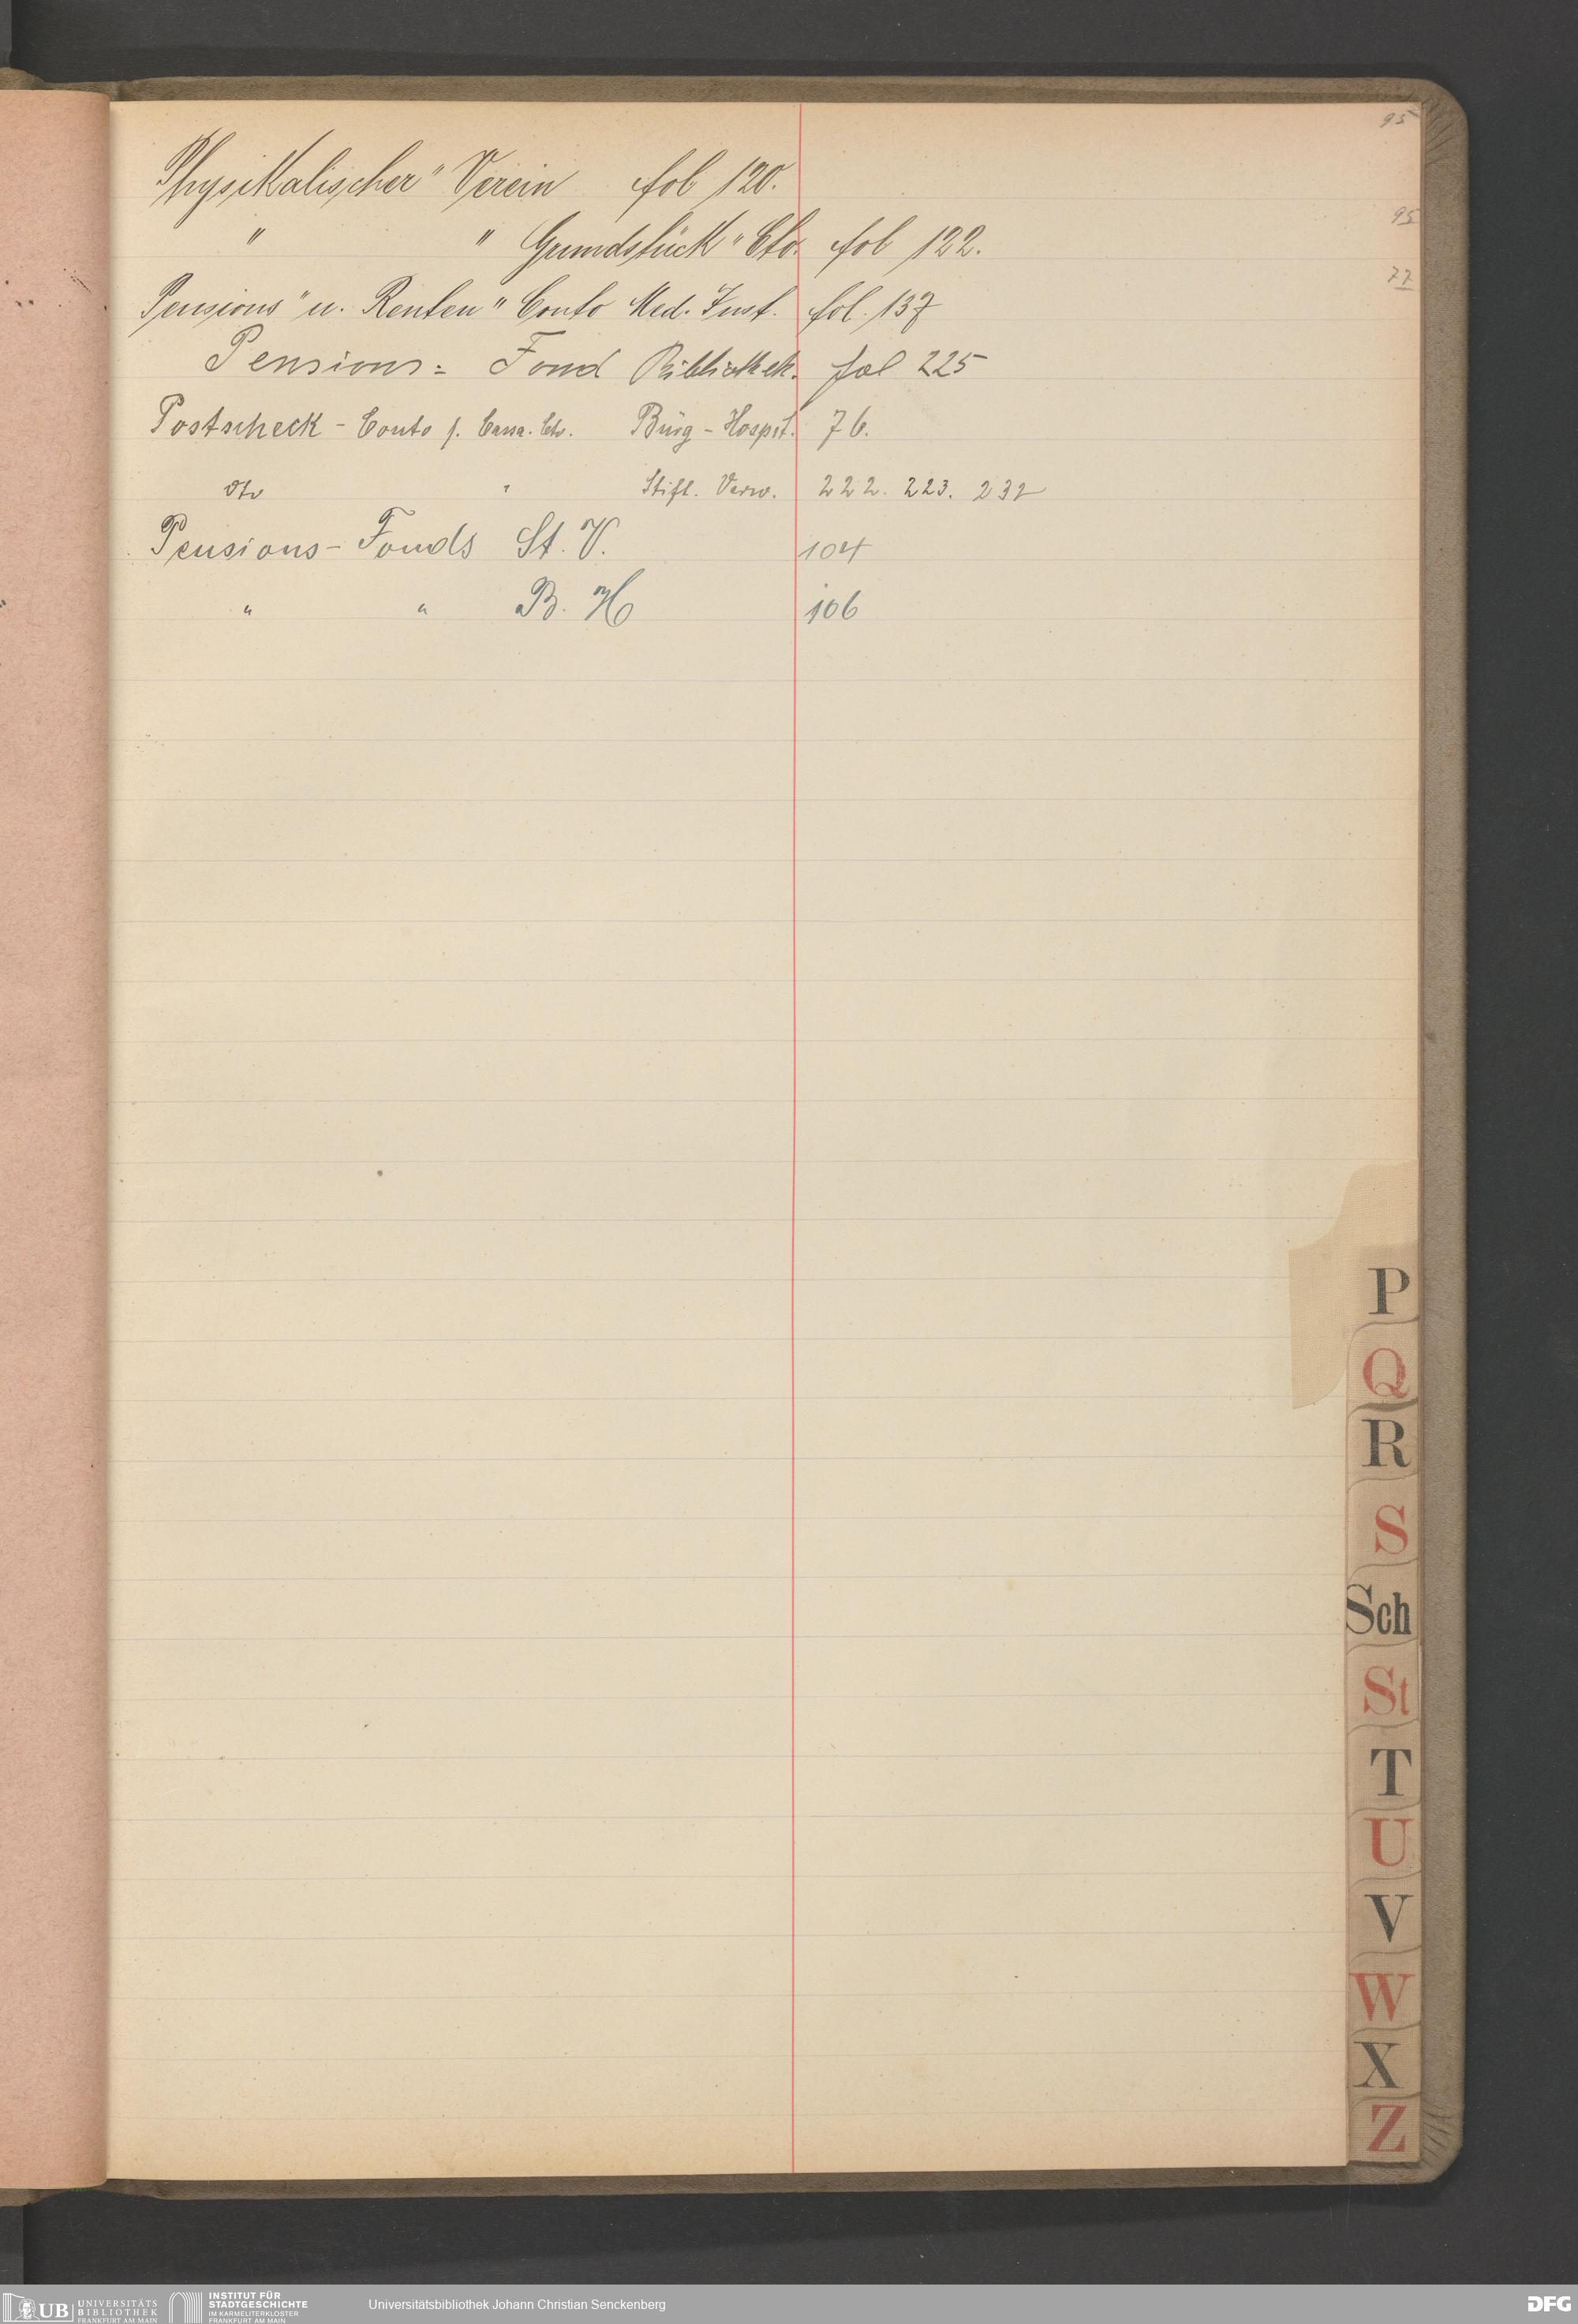 95
Physikalischer" Verein fol 120.
95
" " Grundstück" Cto. fol 122.
77
Pensions" u. Renten" Conto Med. Inst. fol. 137
Pensions= Fond Bibliothek. fol 225
Postscheck - Conto f. Cassa. Cto. Bürg - Hospit. 76.
dto " Stift. Verw. 222. 223. 232
Pensions - Fonds St. V. 104
" " B. H 106
P
Q
R
S
Sch
St
T
U
V
W
X
Z
UB UNIVERSITÄTS
BIBLIOTHEK
FRANKFURT AM MAIN
INSTITUT FÜR
STADTGESCHICHTE
IM KARMELITERKLOSTER
FRANKFURT AM MAIN
Universitätsbibliothek Johann Christian Senckenberg
DFG